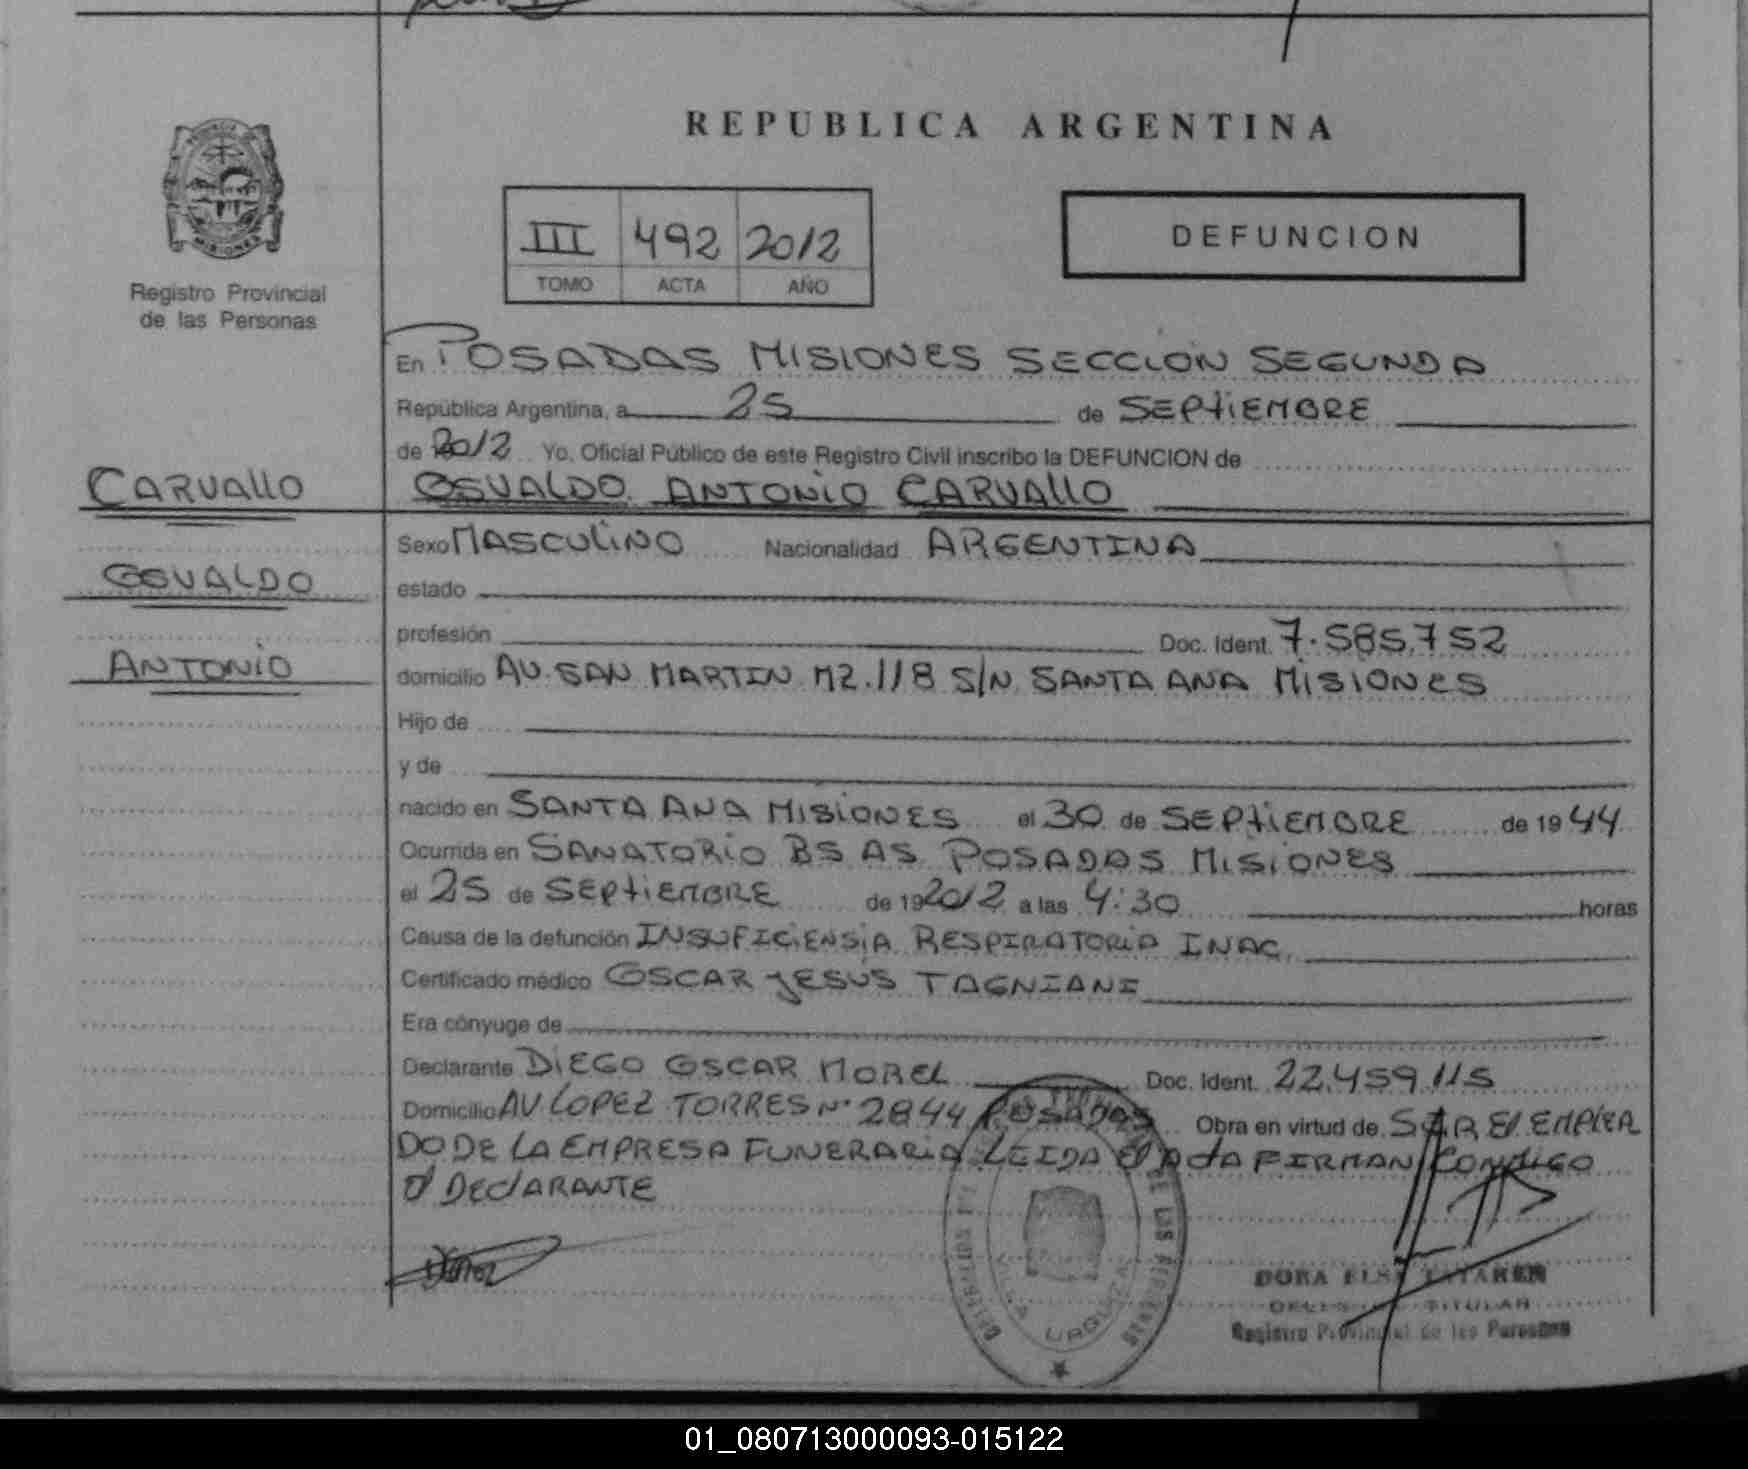 REPUBLICA ARGENTINA
MISIONES
Registro Provincial
de las Personas
III 492 2012
TOMO ACTA AÑO
DEFUNCION
En POSADAS MISIONES SECCION SEGUNDA
República Argentina, a 25 de SEPtiEMBRE
de 2012 Yo, Oficial Público de este Registro Civil inscribo la DEFUNCION de
CARVAllO
OSVALDO ANTONIO CARVAllO
Sexo MASCULINO Nacionalidad ARGENTINA
OSVALDO
estado
profesión Doc. Ident. 7.585.752
ANTONIO
domicilio AV. SAN MARTIN MZ.118 S/N SANTA ANA MISIONES
Hijo de
y de
nacido en SANTA ANA MISIONES el 30 de SEPtiEMBRE de 1944
Ocurrida en SANATORIO BS AS POSADAS MISIONES
el 25 de SEPtiEMBRE de 19 2012 a las 4:30 horas
Causa de la defunción INSUFICIENSIA RESPIRATORIA INAC.
Certificado médico OSCAR JESUS TAGNIANI
Era cónyuge de
Declarante DIEGO OSCAR MOREL Doc. Ident. 22.459.115
Domicilio AV LOPEZ TORRES Nº 2844 POSADAS Obra en virtud de SER El EMPlEA
DO DE LA EMPRESA FUNERARIA LEIDA El ActA FIRMAN CONMIGO
El DEClARANTE
VILLA URQUIZA
DORA
TITULAR
Registro Provincial de las Personas
01_080713000093-015122